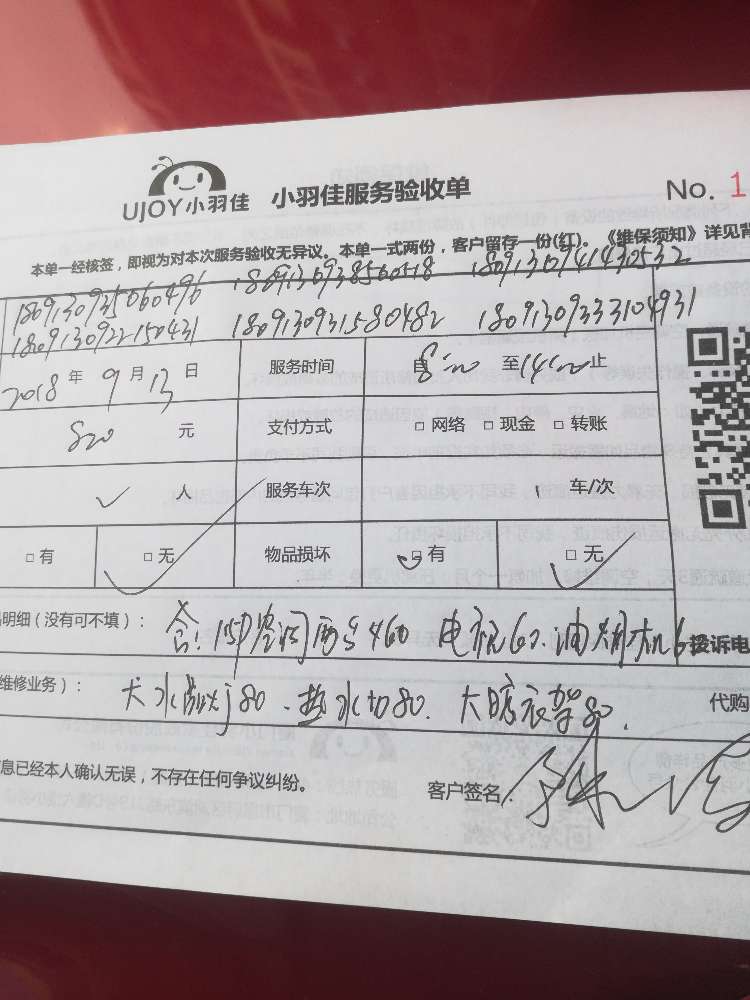 UJOY小羽佳 小羽佳服务验收单 No. 1
本单一经核签，即视为对本次服务验收无异议。本单一式两份，客户留存一份(红)。《维保须知》详见背
1809130935060496 1809130938560518 1809130941430532
1809130922150431 1809130931580482 18091309333104931
2018年9月13日 服务时间 自8:00至14:00止
820元 支付方式 □网络 □现金 □转账
人 服务车次 1车/次
□有 □无 物品损坏 □有 □无
明细（没有可不填）： 含：1.5P空调 460 电视60.油烟机6 投诉电
维修业务）： 大 80.热水 80.大晾衣架80. 代购
息已经本人确认无误，不存在任何争议纠纷。 客户签名：